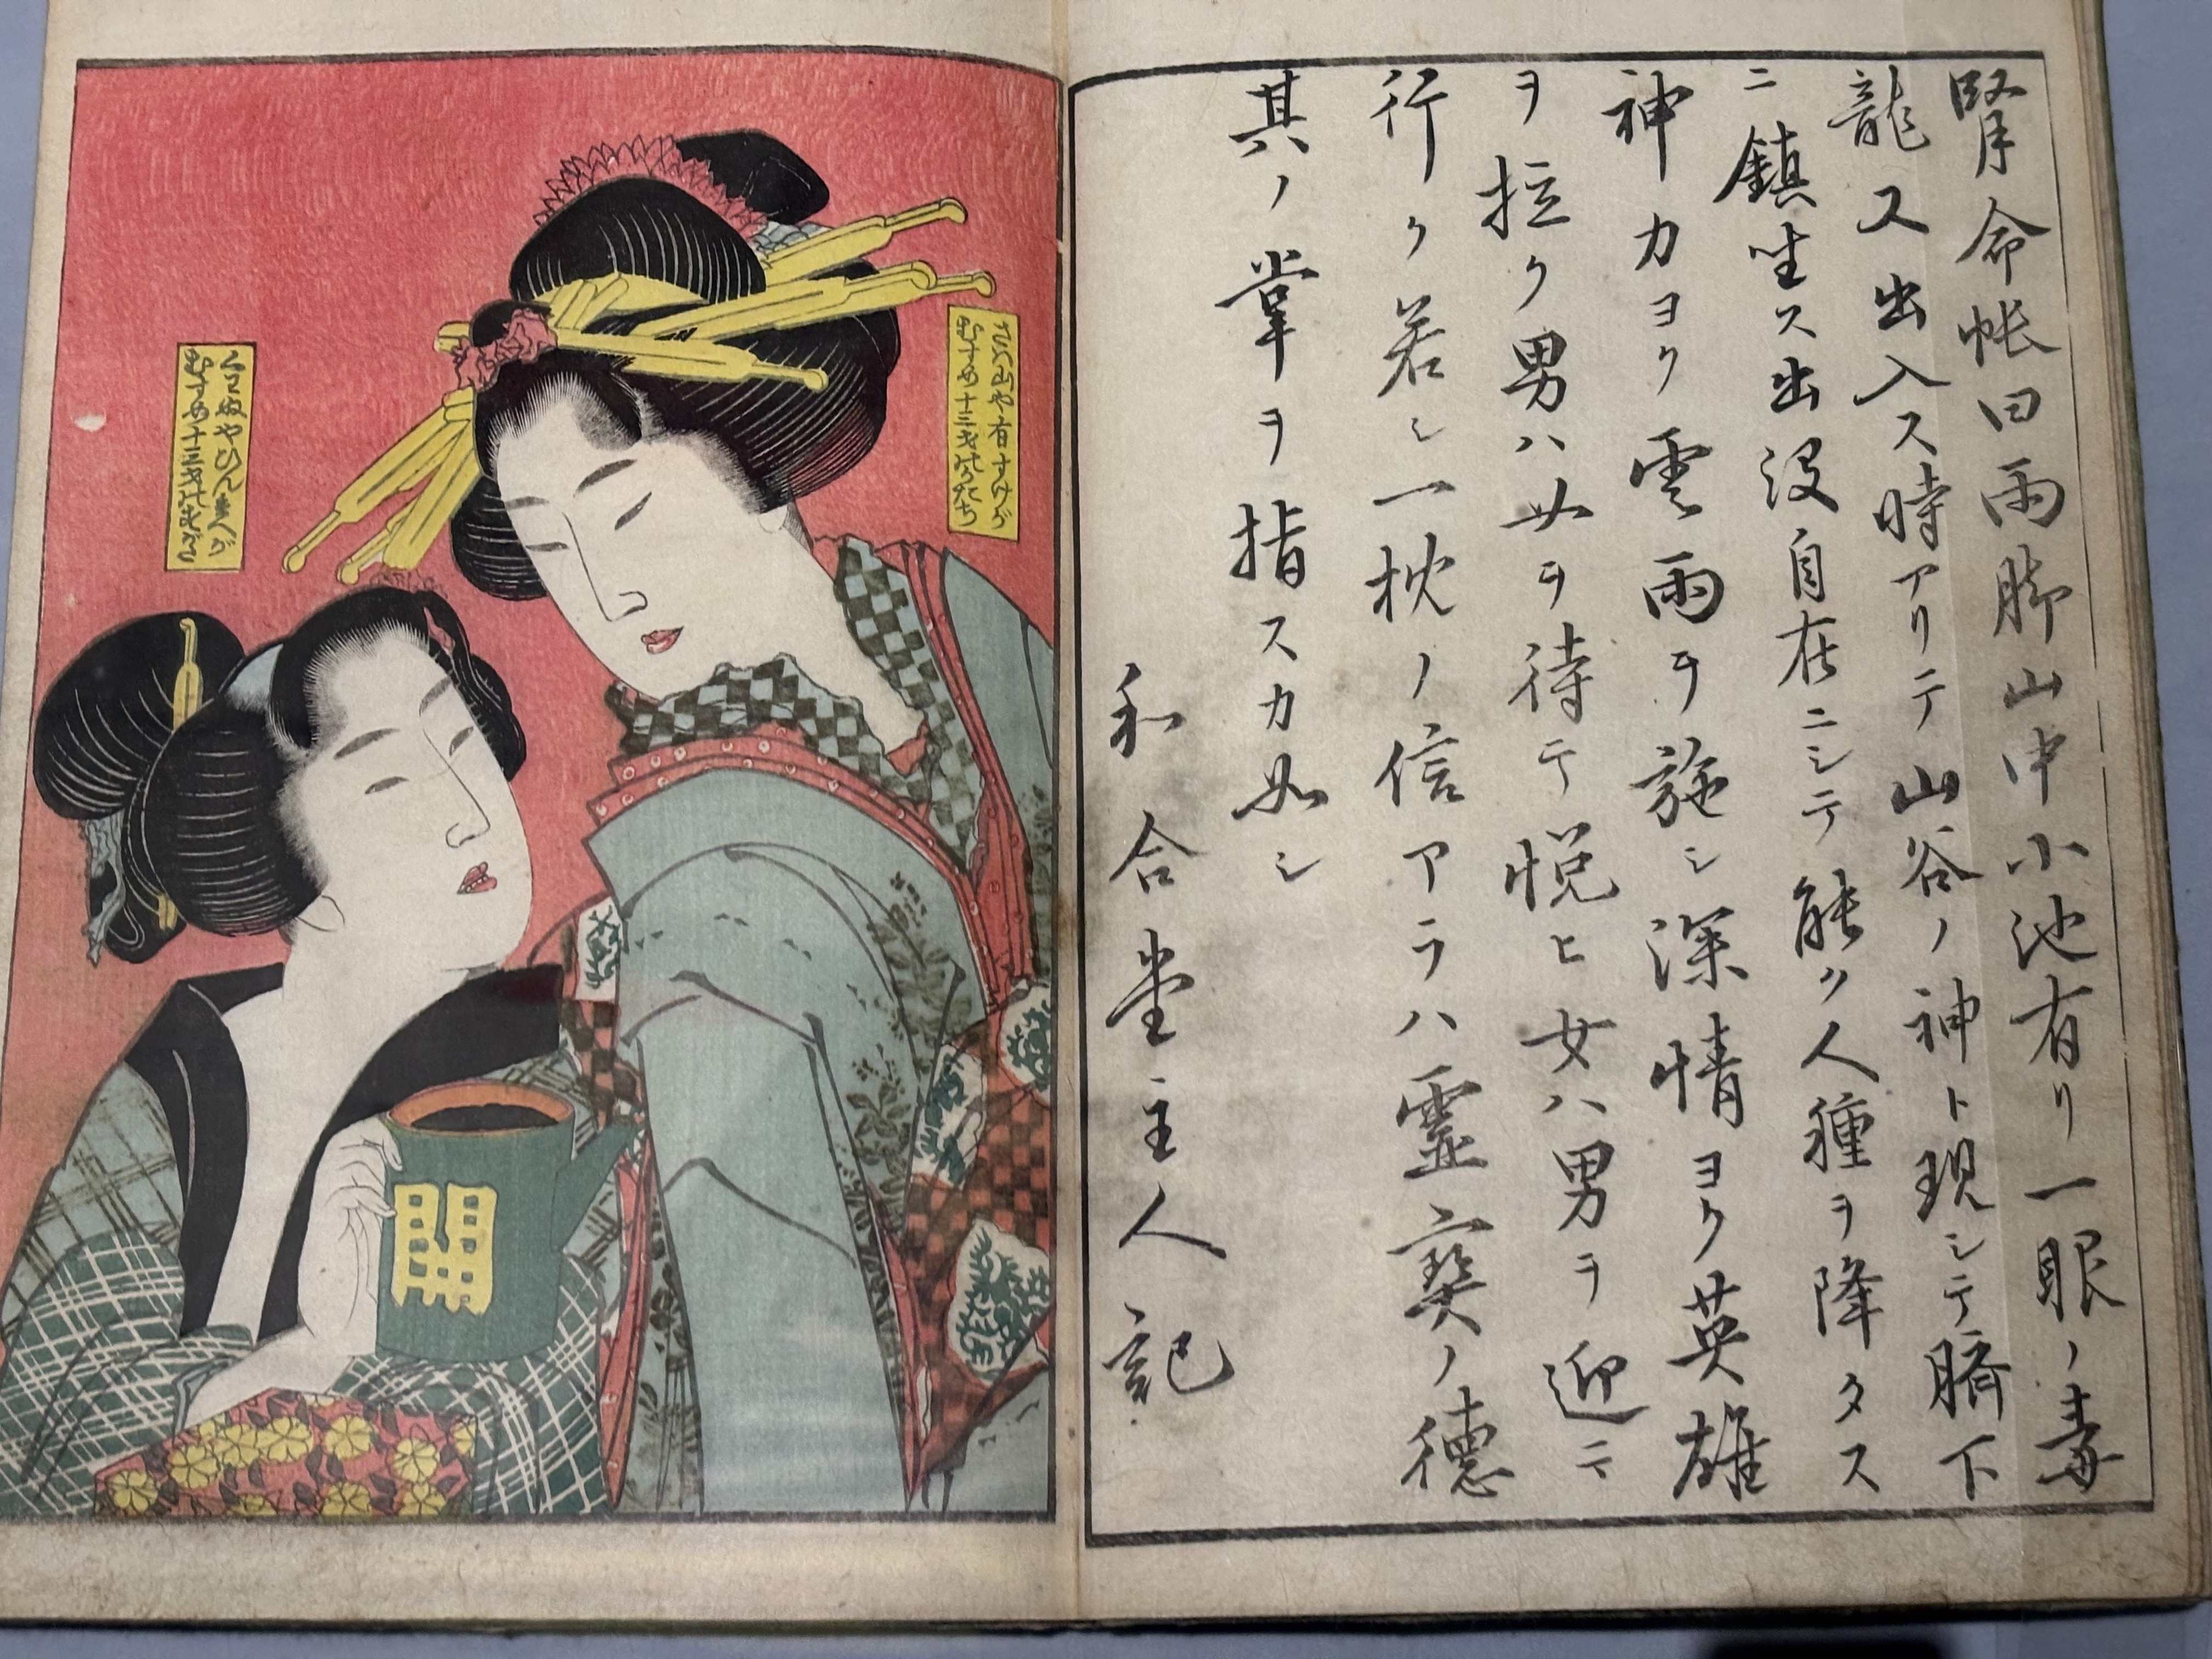 腎命帳曰兩脚山中小池有リ一眼ノ毒
龍又出入ス時アリテ山谷ノ神ト現シテ臍下
ニ鎮坐ス出没自在ニシテ能ク人種ヲ降タス
神力ヨク雲雨ヲ施シ深情ヨク英雄
ヲ拉ク男ハ女ヲ待テ悦ヒ女ハ男ヲ迎テ
行ク若シ一枕ノ信アラハ霊寳ノ德
其ノ掌ヲ指スカ如シ
和合堂主人記
むすめ十三才
むすめ十三才
開